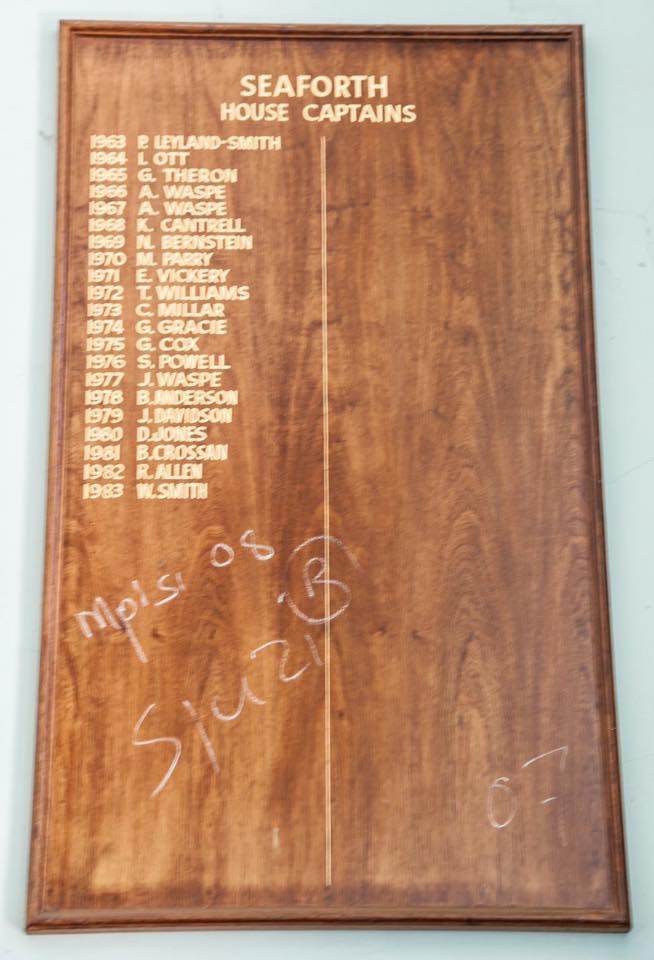 SEAFORTH
HOUSE CAPTAINS
1963 P. LEYLAND-SMITH
1964 I. OTT
1965 G. THERON
1966 A. WASPE
1967 A. WASPE
1968 K. CANTRELL
1969 N. BERNSTEIN
1970 M. PARRY
1971 E. VICKERY
1972 T. WILLIAMS
1973 C. MILLAR
1974 G. GRACIE
1975 G. COX
1976 S. POWELL
1977 J. WASPE
1978 B. ANDERSON
1979 J. DAVIDSON
1980 D. JONES
1981 B. CROSSAN
1982 R. ALLEN
1983 W. SMITH
Mpisi 08
R
07